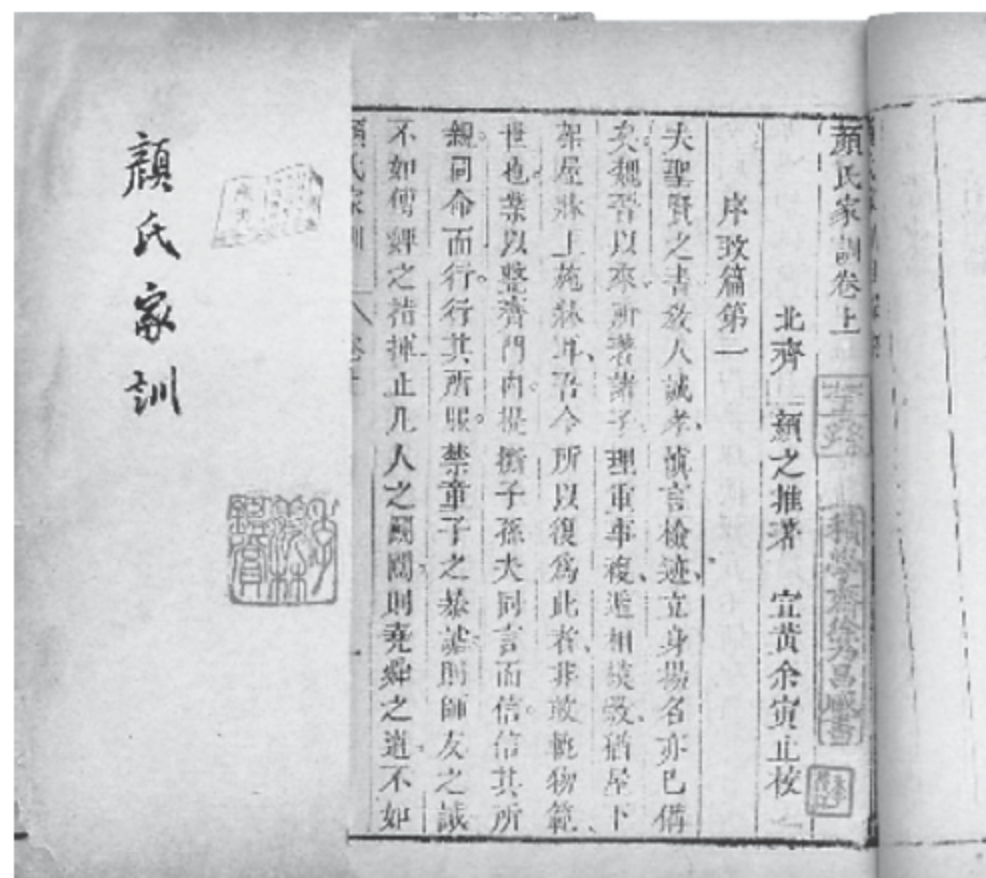 顏氏家訓卷上
積學齋徐乃昌藏書
北齊 顏之推著 宜黃余寅止校
序致篇第一
夫聖賢之書敎人誠孝愼言檢迹立身揚名亦已備
矣魏晉以來所著諸子理重事複遞相模斆猶屋下
架屋牀上施牀耳吾今所以復爲此者非敢軌物範
世也業以整齊門內提撕子孫夫同言而信信其所
親同命而行行其所服禁童子之暴謔則師友之誡
不如傅婢之指揮止凡人之鬬鬩則堯舜之道不如
顏氏家訓 卷上
顏氏家訓